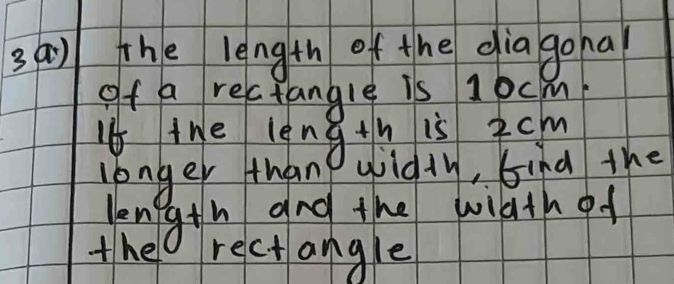 3 a) the length of the diagonal
of a rectangle is 10cm.
If the length is 2cm
longer than width, find the
length and the width of
the rectangle